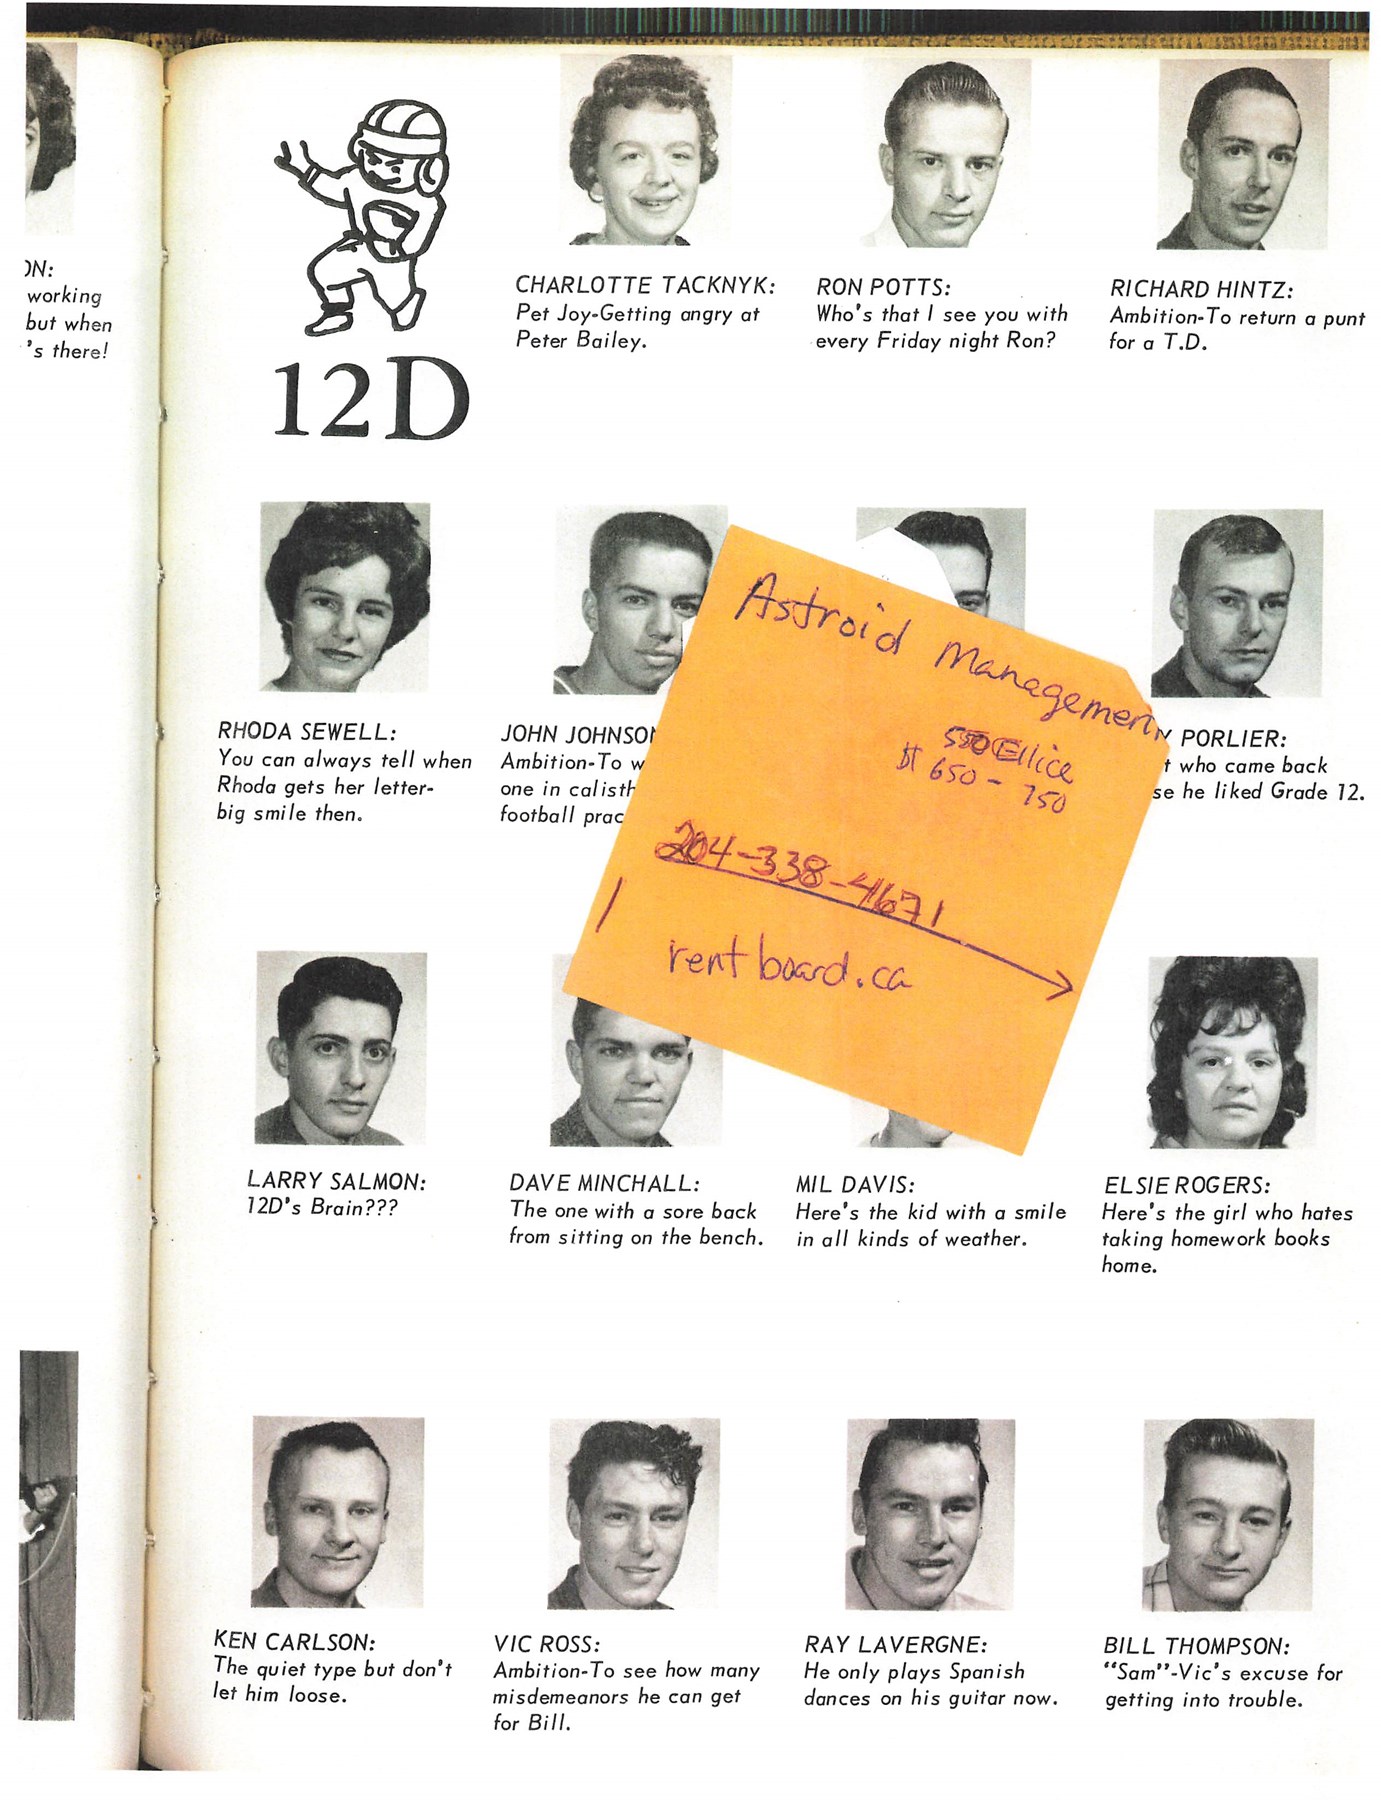 ON:
working
but when
's there!
12D
CHARLOTTE TACKNYK:
Pet Joy-Getting angry at
Peter Bailey.
RON POTTS:
Who's that I see you with
every Friday night Ron?
RICHARD HINTZ:
Ambition-To return a punt
for a T.D.
RHODA SEWELL:
You can always tell when
Rhoda gets her letter-
big smile then.
JOHN JOHNSON
Ambition-To w
one in calisth
football prac
Astroid Management
550 Ellice
$ 650 - 750
204-338-4671
rentboard.ca
Y PORLIER:
t who came back
se he liked Grade 12.
LARRY SALMON:
12D's Brain???
DAVE MINCHALL:
The one with a sore back
from sitting on the bench.
MIL DAVIS:
Here's the kid with a smile
in all kinds of weather.
ELSIE ROGERS:
Here's the girl who hates
taking homework books
home.
KEN CARLSON:
The quiet type but don't
let him loose.
VIC ROSS:
Ambition-To see how many
misdemeanors he can get
for Bill.
RAY LAVERGNE:
He only plays Spanish
dances on his guitar now.
BILL THOMPSON:
"Sam"-Vic's excuse for
getting into trouble.